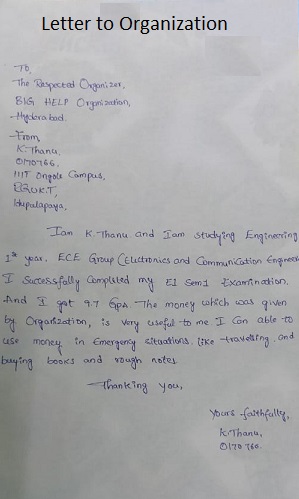 Letter to Organization
To,
The Respected Organizer,
BIG HELP Organisation,
Hyderabad.
From,
K.Thanu,
O170766,
IIIT Ongole Campus,
RGUKT,
Idupulapaya,
Iam K.Thanu and Iam studying Engineering
1st year. ECE Group (Electronics and Communication Engineer
I Successfully Completed my E1 Sem1 Examination.
And I got 9.7 Gpa. The money which was given
by Organization, is very useful to me. I Can able to
use money in Emergency situations. like travelling. and
buying books and rough notes.
Thanking you,
Yours faithfully,
K.Thanu,
O170766.